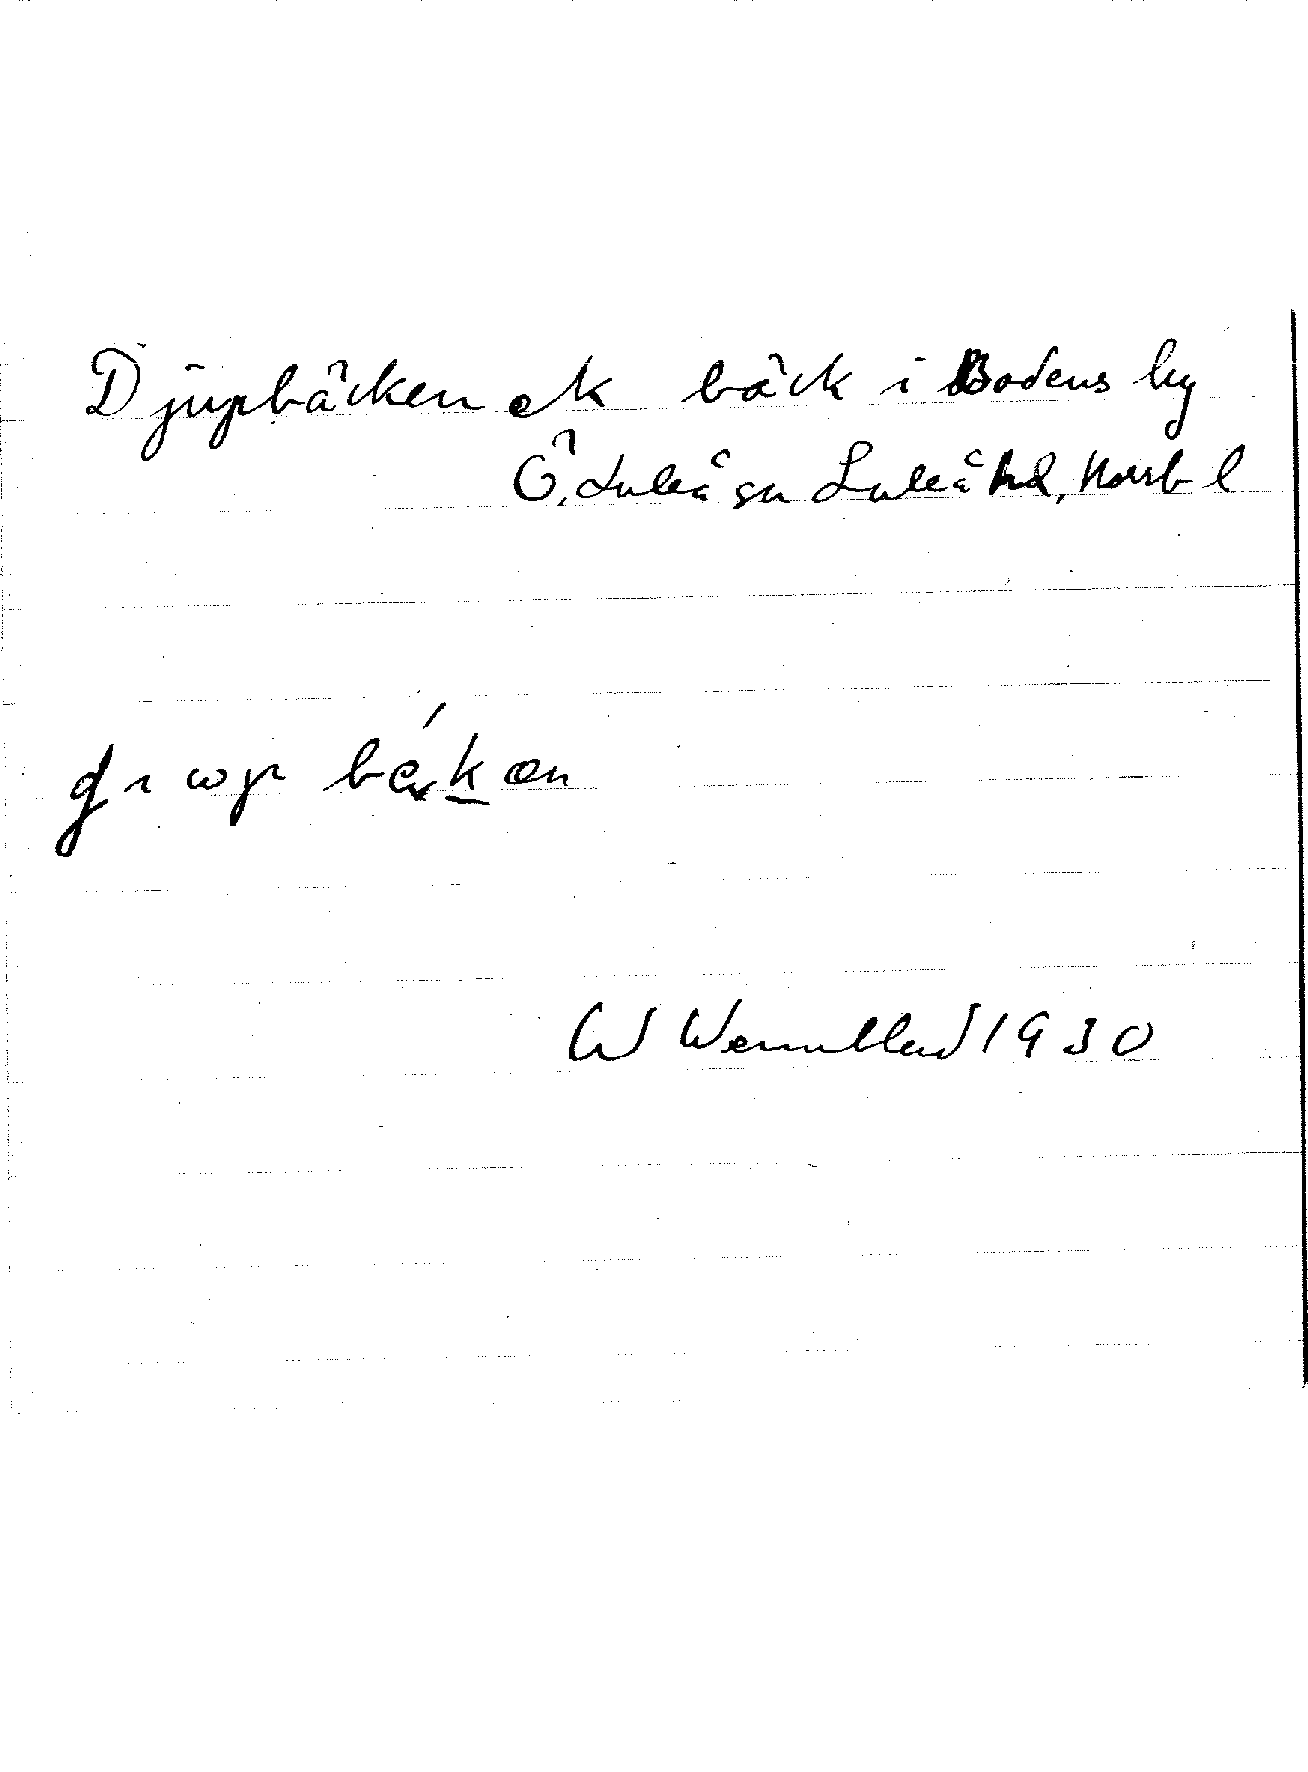 Djupbäcken ek bäck i Bodens by
Ö. Luleå sn Luleå hd, Norrb l
W Wennblad 1930